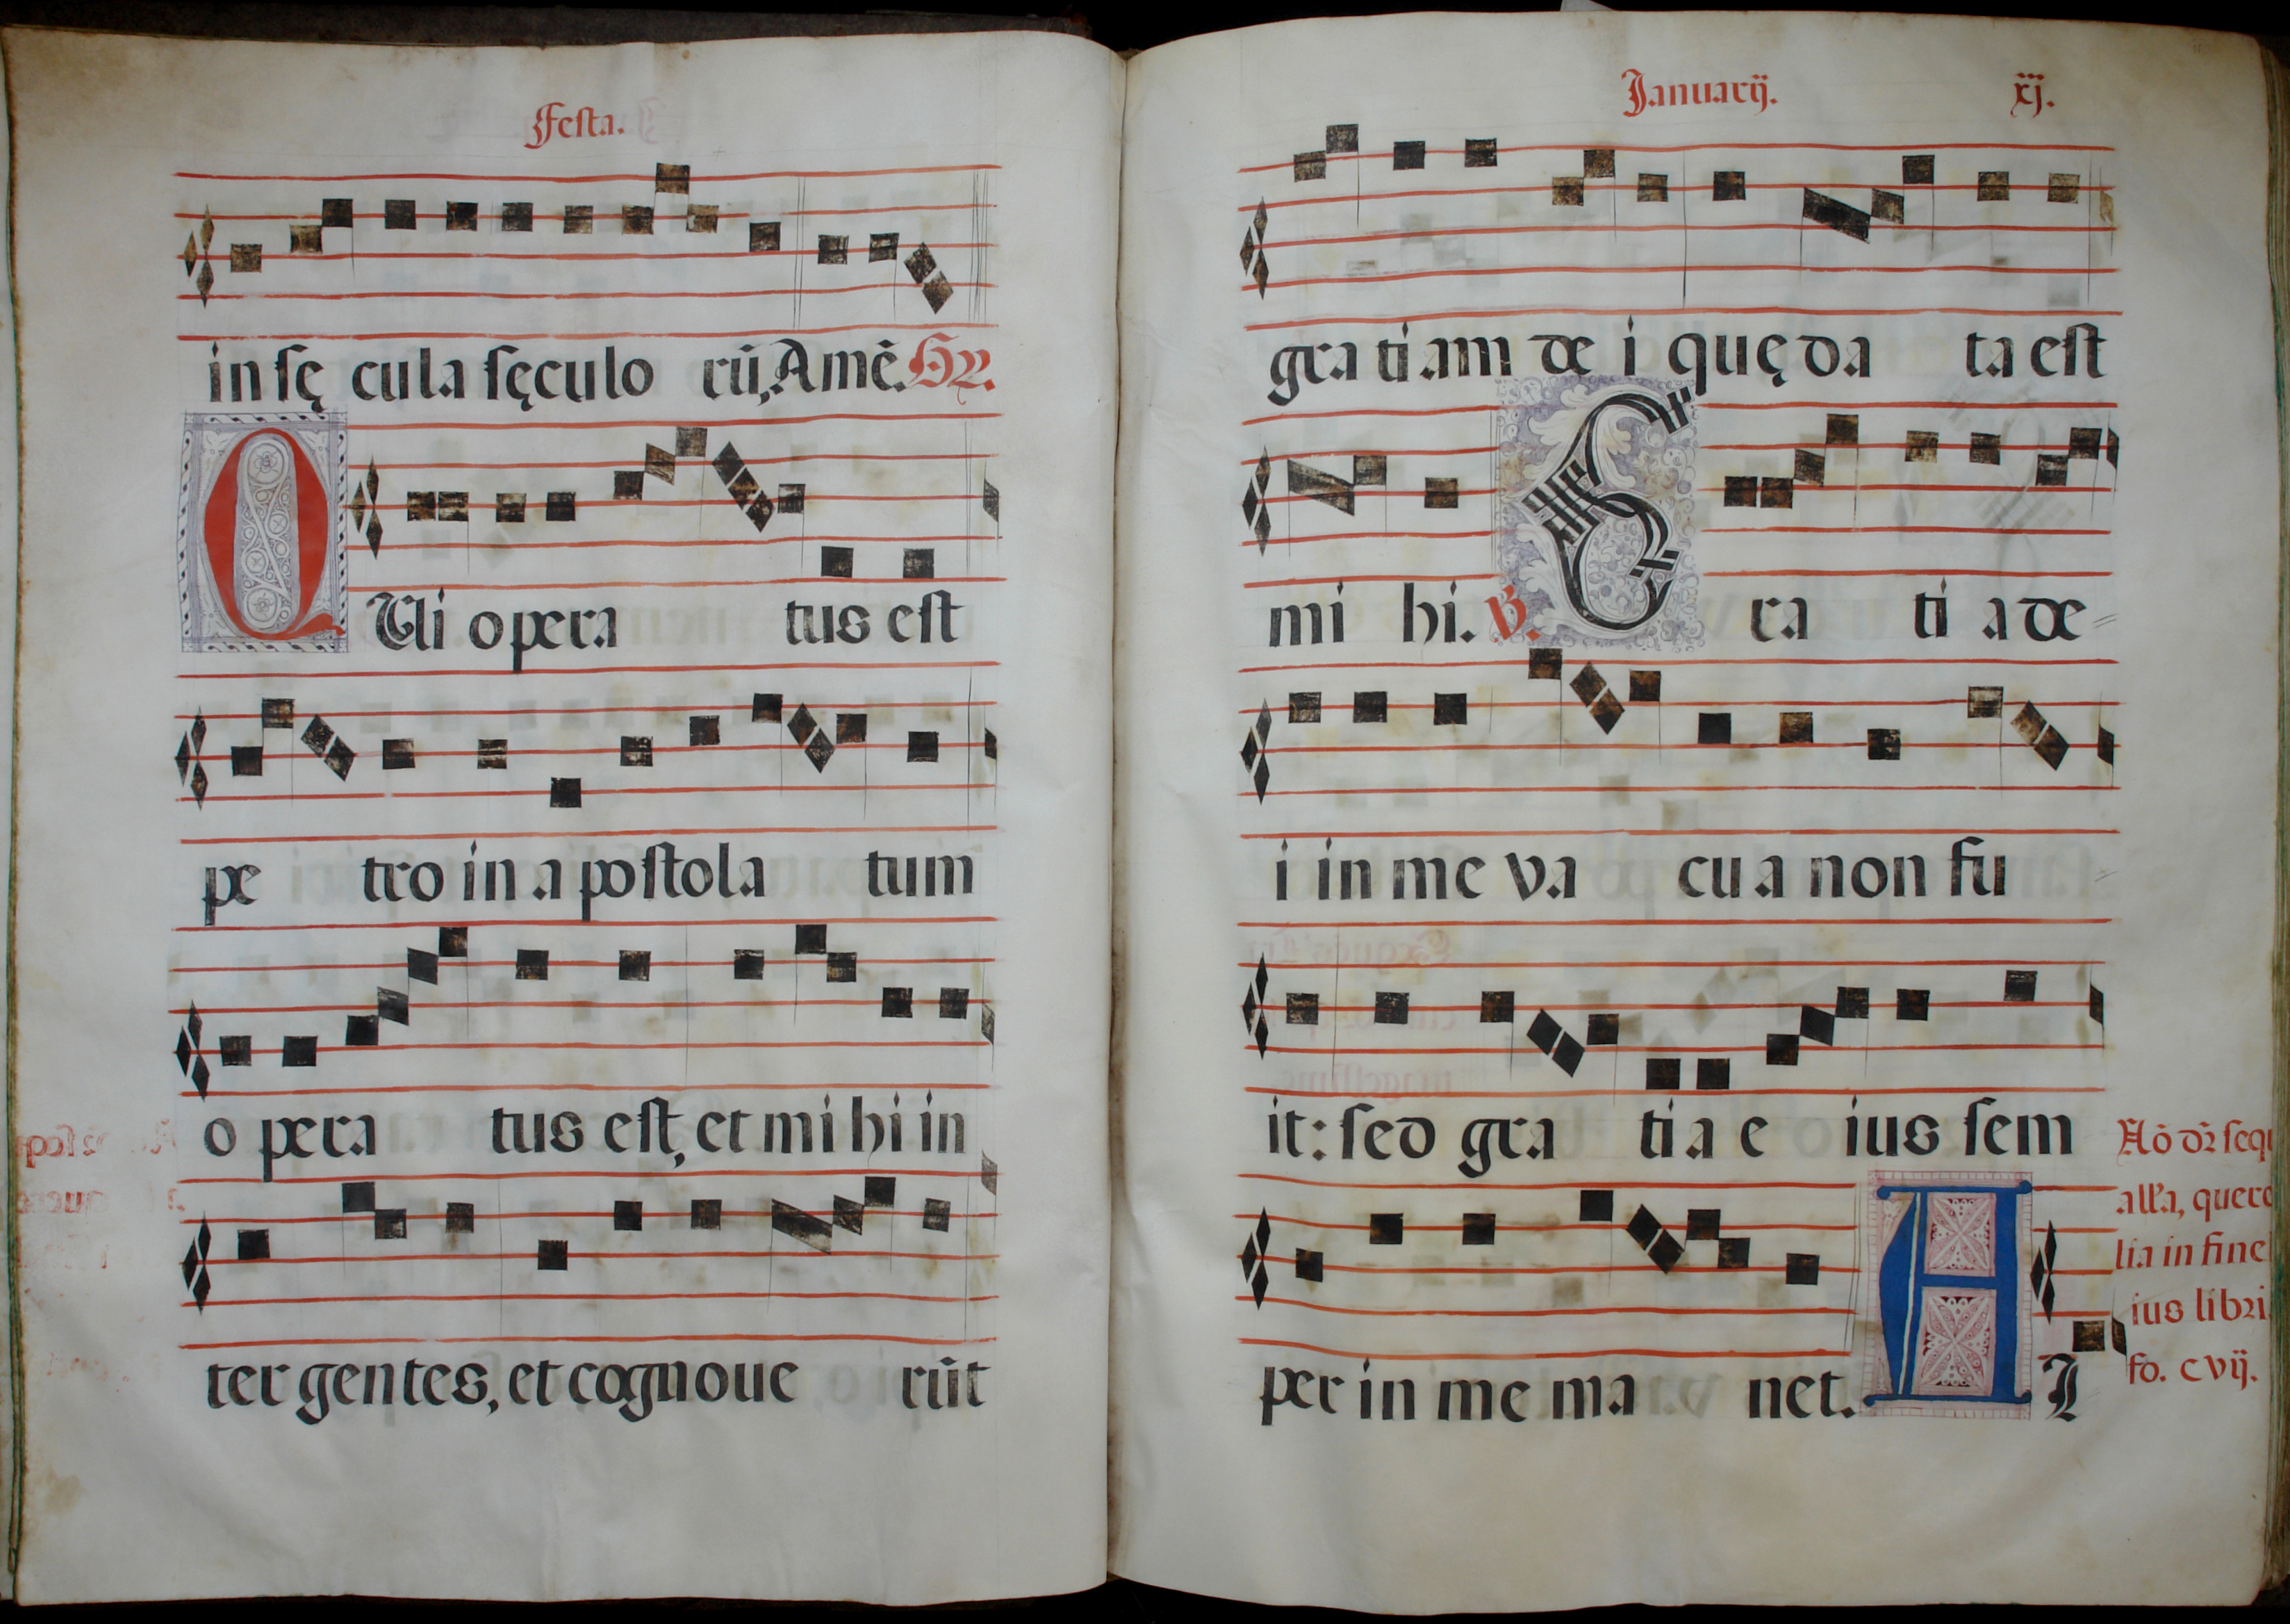 Festa.
in sę cula sęculo rū, Amē. Gr.
QUi opera tus est
pe tro in apostola tum
o pera tus est, et mihi in
ter gentes, et cognoue rūt
Januarij. xj.
gra tiam de i quę da ta est
mi hi. ℣. Gra ti a de
i in me va cu a non fu
it: sed gra ti a e ius sem
per in me ma net. Al
Aō dr̄ sequ
alľa, quere
lia in fine
ius libri,
fo. cvij.